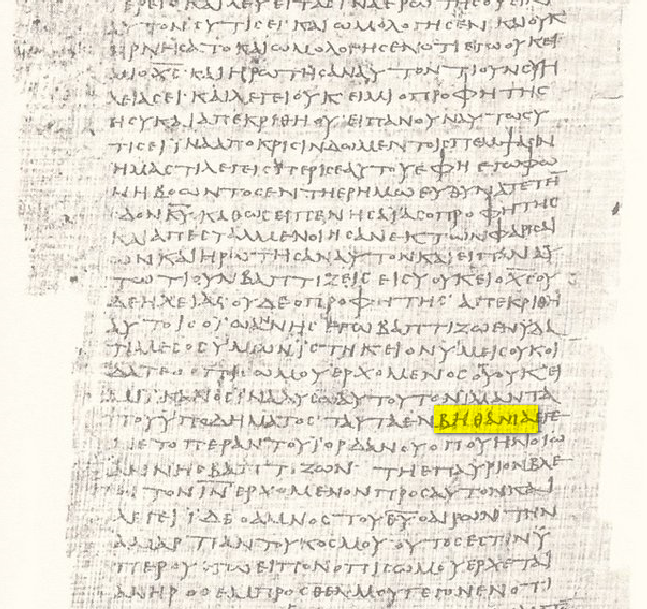 ΑΥΤΟΝ CΥ ΤΙC ΕΙ ΚΑΙ ΩΜΟΛΟΓΗCΕΝ ΚΑΙ ΟΥΚ
ΗΡΝΗCΑΤΟ ΚΑΙ ΩΜΟΛΟΓΗCΕΝ ΟΤΙ ΕΓΩ ΟΥΚ ΕΙ
ΜΙ Ο Χ̅C̅ ΚΑΙ ΗΡΩΤΗCΑΝ ΑΥΤΟΝ ΤΙ ΟΥΝ CΥ Η
ΛΕΙΑC ΕΙ ΚΑΙ ΛΕΓΕΙ ΟΥΚ ΕΙΜΙ Ο ΠΡΟΦΗΤΗC
ΕΙ CΥ ΚΑΙ ΑΠΕΚΡΙΘΗ ΟΥ ΕΙΠΑΝ ΟΥΝ ΑΥΤΩ CΥ
ΤΙC ΕΙ ΙΝΑ ΑΠΟΚΡΙCΙΝ ΔΩΜΕΝ ΤΟΙC ΠΕΜΨΑCΙΝ
ΗΜΑC ΤΙ ΛΕΓΕΙC ΠΕΡΙ CΕΑΥΤΟΥ ΕΦΗ ΕΓΩ ΦΩ
ΝΗ ΒΟΩΝΤΟC ΕΝ ΤΗ ΕΡΗΜΩ ΕΥΘΥΝΑΤΕ ΤΗ
ΟΔΟΝ Κ̅Υ̅ ΚΑΘΩC ΕΙΠΕΝ ΗCΑΙΑC Ο ΠΡΟΦΗΤΗC
ΚΑΙ ΑΠΕCΤΑΛΜΕΝΟΙ ΗCΑΝ ΕΚ ΤΩΝ ΦΑΡΙCΑΙ
ΩΝ ΚΑΙ ΗΡΩΤΗCΑΝ ΑΥΤΟΝ ΚΑΙ ΕΙΠΑΝ ΑΥ
ΤΩ ΤΙ ΟΥΝ ΒΑΠΤΙΖΕΙC ΕΙ CΥ ΟΥΚ ΕΙ Ο Χ̅C̅ ΟΥ
ΔΕ ΗΛΕΙΑC ΟΥΔΕ Ο ΠΡΟΦΗΤΗC ΑΠΕΚΡΙΘΗ
ΑΥΤΟΙC Ο ΙΩΑΝΗC ΕΓΩ ΒΑΠΤΙΖΩ ΕΝ ΥΔΑ
ΤΙ ΜΕCΟC ΥΜΩΝ ΙCΤΗΚΕΙ ΟΝ ΥΜΕΙC ΟΥΚ ΟΙ
ΔΑΤΕ Ο ΟΠΙCΩ ΜΟΥ ΕΡΧΟΜΕΝΟC ΟΥ ΟΥΚ ΕΙ
ΜΙ ΙΚΑΝΟC ΙΝΑ ΛΥCΩ ΑΥΤΟΥ ΤΟΝ ΙΜΑΝΤΑ
ΤΟΥ ΥΠΟΔΗΜΑΤΟC ΤΑΥΤΑ ΕΝ ΒΗΘΑΝΙΑ ΕΓΕ
ΝΕΤΟ ΠΕΡΑΝ ΤΟΥ ΙΟΡΔΑΝΟΥ ΟΠΟΥ ΗΝ Ο ΙΩ
ΑΝΗC ΒΑΠΤΙΖΩΝ ΤΗ ΕΠΑΥΡΙΟΝ ΒΛΕ
ΠΕΙ ΤΟΝ Ι̅Ν̅ ΕΡΧΟΜΕΝΟΝ ΠΡΟC ΑΥΤΟΝ ΚΑΙ
ΛΕΓΕΙ ΙΔΕ Ο ΑΜΝΟC ΤΟΥ Θ̅Υ̅ Ο ΑΙΡΩΝ ΤΗΝ
ΑΜΑΡΤΙΑΝ ΤΟΥ ΚΟCΜΟΥ ΟΥΤΟC ΕCΤΙΝ Υ
ΠΕΡ ΟΥ ΕΓΩ ΕΙΠΟΝ ΟΠΙCΩ ΜΟΥ ΕΡΧΕΤΑΙ
ΑΝΗΡ ΟC ΕΜΠΡΟCΘΕΝ ΜΟΥ ΓΕΓΟΝΕΝ ΟΤΙ